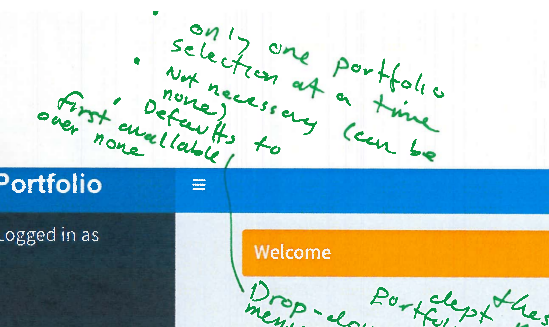 • only one portfolio
selection at a time
• Not necessary (can be
none)
• Defaults to
first available
over none
Portfolio
Logged in as
Welcome
Drop-down
menu
Portfolio
dept